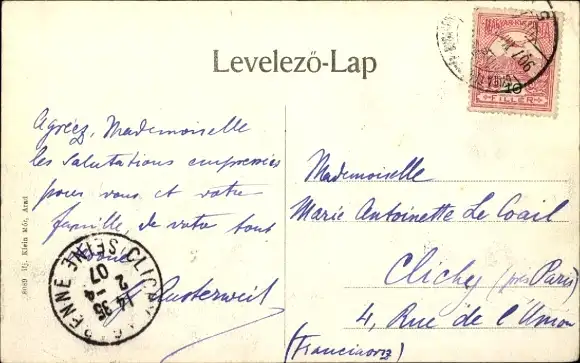 Levelező-Lap
MAGYAR KIR. POSTA
10
FILLÉR
Agréez, Mademoiselle
les salutations empressées
pour vous et votre
famille, de votre tout
dévoué
Austerweil
CLICHY LA GARENNE SEINE
14 35
2 -4
07
8089 Uj. Klein Mór, Arad
Mademoiselle
Marie Antoinette Le Coail
Clichy (près Paris)
4, Rue de l'Union